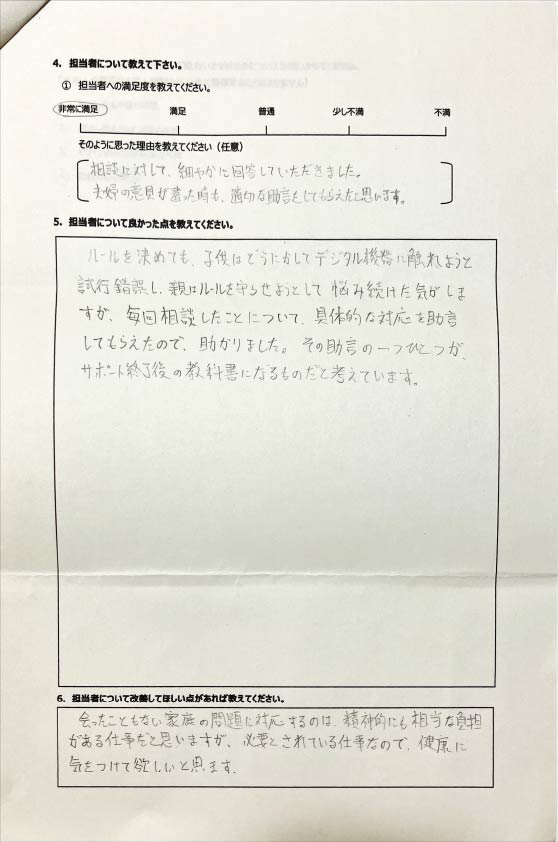 4．担当者について教えて下さい。
① 担当者への満足度を教えてください。
非常に満足 満足 普通 少し不満 不満
そのように思った理由を教えてください（任意）
相談に対して、細やかに回答していただきました。
夫婦の意見が違った時も、適切な助言をしてもらえたと思います。
5．担当者について良かった点を教えてください。
ルールを決めても、子供はどうにかしてデジタル機器に触れようと
試行錯誤し、親はルールを守らせようとして悩み続けた気がしま
すが、毎回相談したことについて、具体的な対応を助言
してもらえたので、助かりました。その助言の一つひとつが、
サポート終了後の教科書になるものだと考えています。
6．担当者について改善してほしい点があれば教えてください。
会ったこともない家庭の問題に対応するのは、精神的にも相当な負担
がある仕事だと思いますが、必要とされている仕事なので、健康に
気をつけて欲しいと思います。